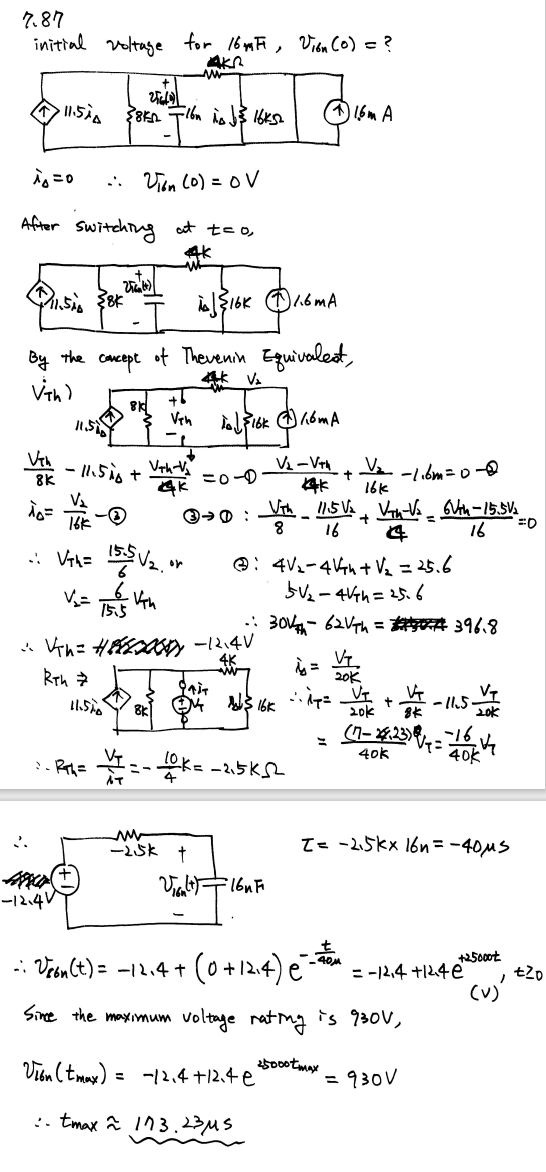 7.87
initial voltage for 16nF, V16n(0) = ?
4KΩ
11.5iΔ 8KΩ + V16n(0) - 16n iΔ↓ 16KΩ 1.6mA
iΔ=0 ∴ V16n(0) = 0V
After switching at t=0,
4K
11.5iΔ 8K + V16n(t) - iΔ↓ 16K 1.6mA
By the concept of Thevenin Equivalent,
VTh) 4K V2
11.5iΔ 8K + VTh - iΔ↓ 16K 1.6mA
VTh/8K - 11.5iΔ + (VTh-V2)/4K = 0 -① (V2-VTh)/4K + V2/16K - 1.6m = 0 -②
iΔ = V2/16K -③ ③→①: VTh/8 - 11.5V2/16 + (VTh-V2)/4 = (6VTh-15.5V2)/16 = 0
∴ VTh = 15.5/6 V2, or ②: 4V2-4VTh+V2 = 25.6
V2 = 6/15.5 VTh 5V2-4VTh = 25.6
∴ 30VTh - 62VTh = 396.8
∴ VTh = -12.4V
RTh ⇒ 4K iΔ = VT/20K
11.5iΔ 8K ↑iT VT iΔ↓ 16K ∴ iT = VT/20K + VT/8K - 11.5 VT/20K
= (7-23)/40K VT = -16/40K VT
∴ RTh = VT/iT = -10/4 K = -2.5KΩ
∴ -2.5K τ = -2.5k × 16n = -40μs
-12.4V + V16n(t) - 16nF
∴ V16n(t) = -12.4 + (0+12.4) e^(-t/-40μ) = -12.4 + 12.4e^(+25000t), t≥0
(V)
Since the maximum voltage rating is 930V,
V16n(tmax) = -12.4 + 12.4e^(25000tmax) = 930V
∴ tmax ≈ 173.23μs